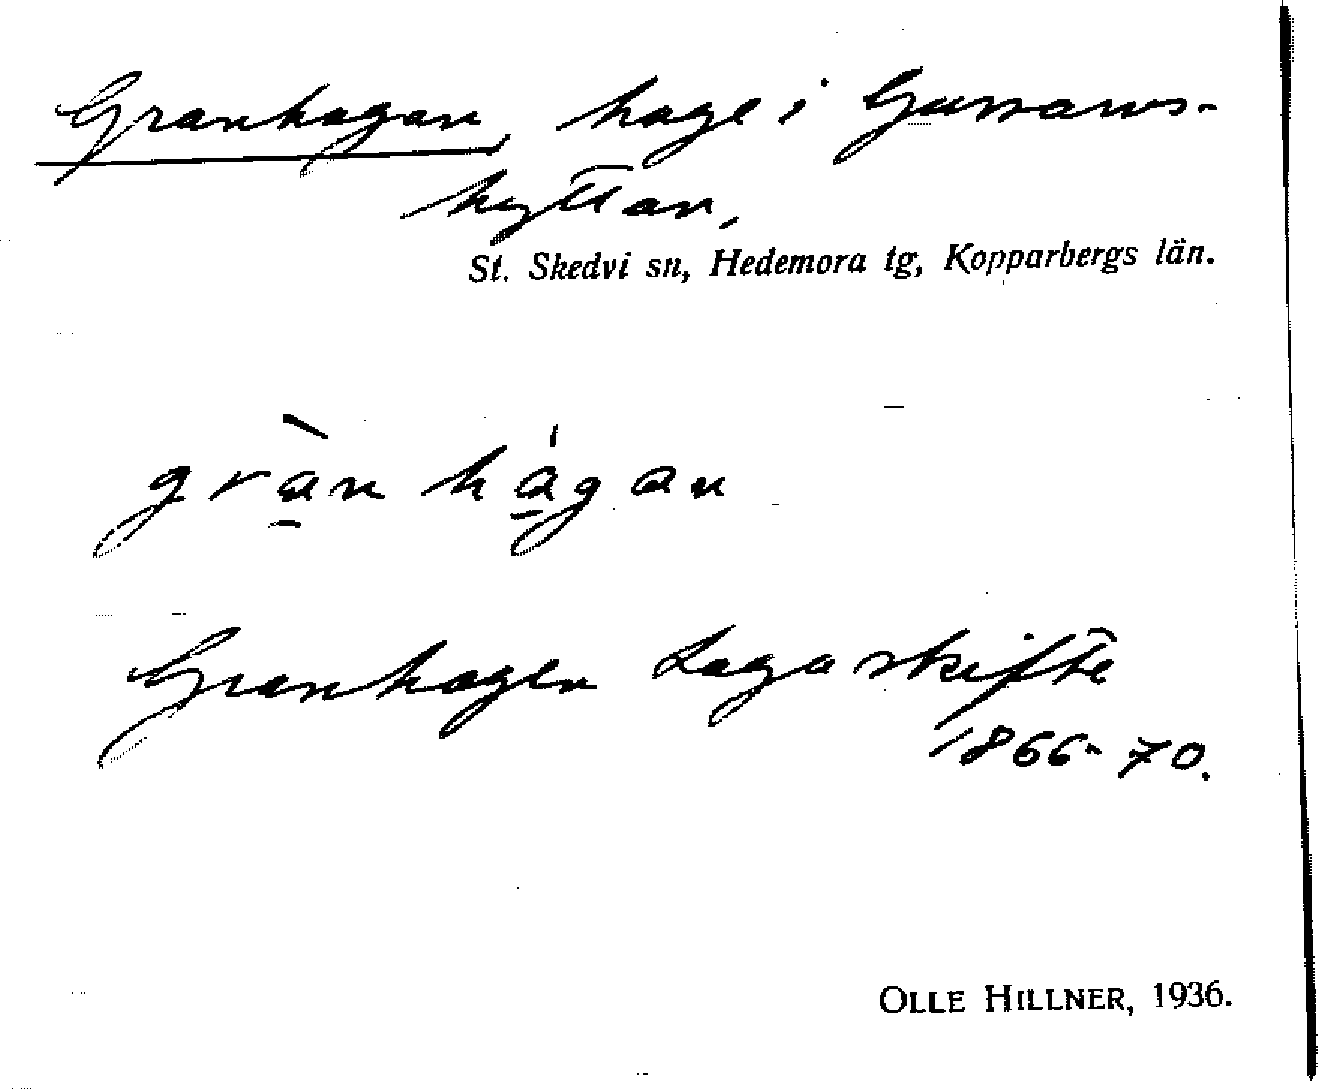 Granhagan, hage i Gussarvs-
hyttan,
St. Skedvi sn, Hedemora tg, Kopparbergs län.
gràn hágan
Granhagen Laga skifte
1866-70.
OLLE HILLNER, 1936.